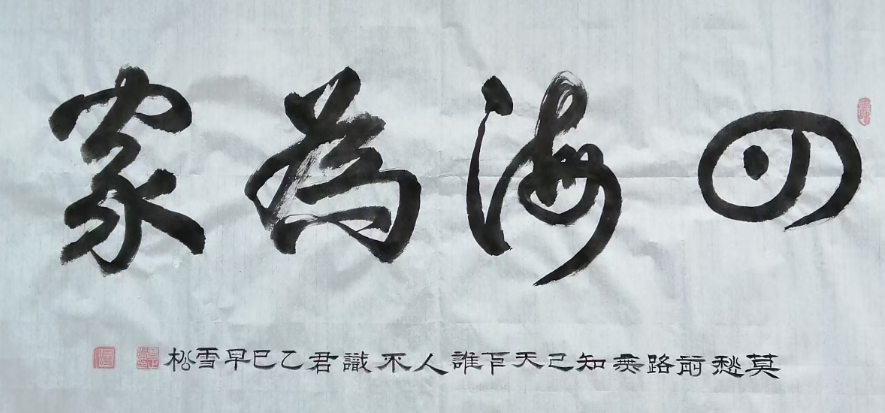 四海為家
莫愁前路無知己天下誰人不識君乙巳早雪松